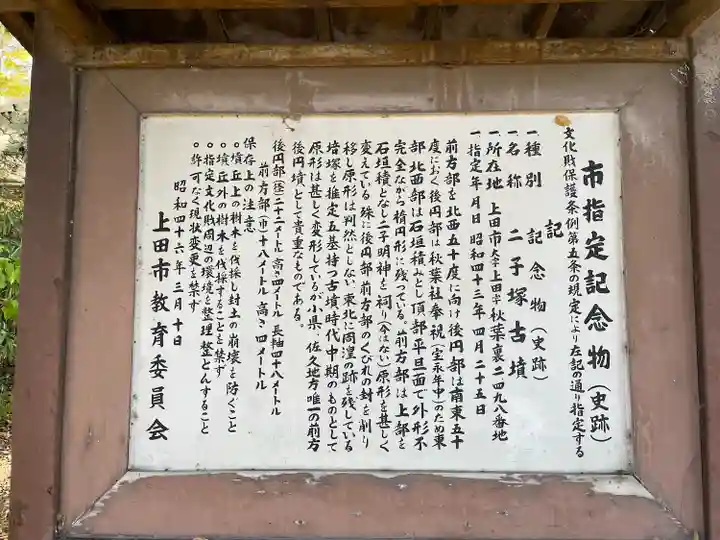 市指定記念物(史跡)
文化財保護条例第五条の規定により左記の通り指定する
記
一種別 記念物(史跡)
一名称 二子塚古墳
一所在地 上田市大字上田字秋葉裏二四九八番地
一指定年月日 昭和四十三年四月二十五日
前方部を北西五十度に向け後円部は南東五十
度におく後円部は秋葉社奉祝(宝永年中)のため東
部北西部は石垣積みとし頂部平旦面で外形不
完全ながら楕円形に残っている。前方部は上部を
石垣積となし二子明神を祠り(今はない)原形を甚しく
変えている 殊に後円部前方部のくびれの封を削り
移し原形は判然としない東北に周湟の跡を残している
培塚を推定五基持つ古墳時代中期のものとして
原形は甚しく変形しているが小県、佐久地方唯一の前方
後円墳として貴重なものである。
後円部(径)二十二メートル 高さ四メートル 長軸四十八メートル
前方部(巾)十八メートル 高さ四メートル
保存上の注意
○墳丘上の樹木を伐採し封土の崩壊を防ぐこと
○墳丘外の樹木を伐採することを禁ず
○指定文化財周辺の環境を整理整とんすること
○許可なき現状変更を禁ず
昭和四十六年三月十日
上田市教育委員会